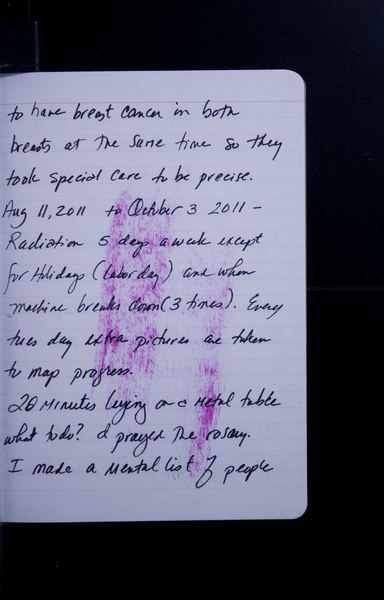 to have breast cancer in both
breasts at the same time so they
took special care to be precise.
Aug 11, 2011 to October 3 2011 -
Radiation 5 days a week except
for Holidays (labor day) and when
machine breaks down (3 times). Every
tues day extra pictures are taken
to map progress.
20 Minutes laying on a Metal table
what to do? I prayed The rosary.
I made a Mental list of people